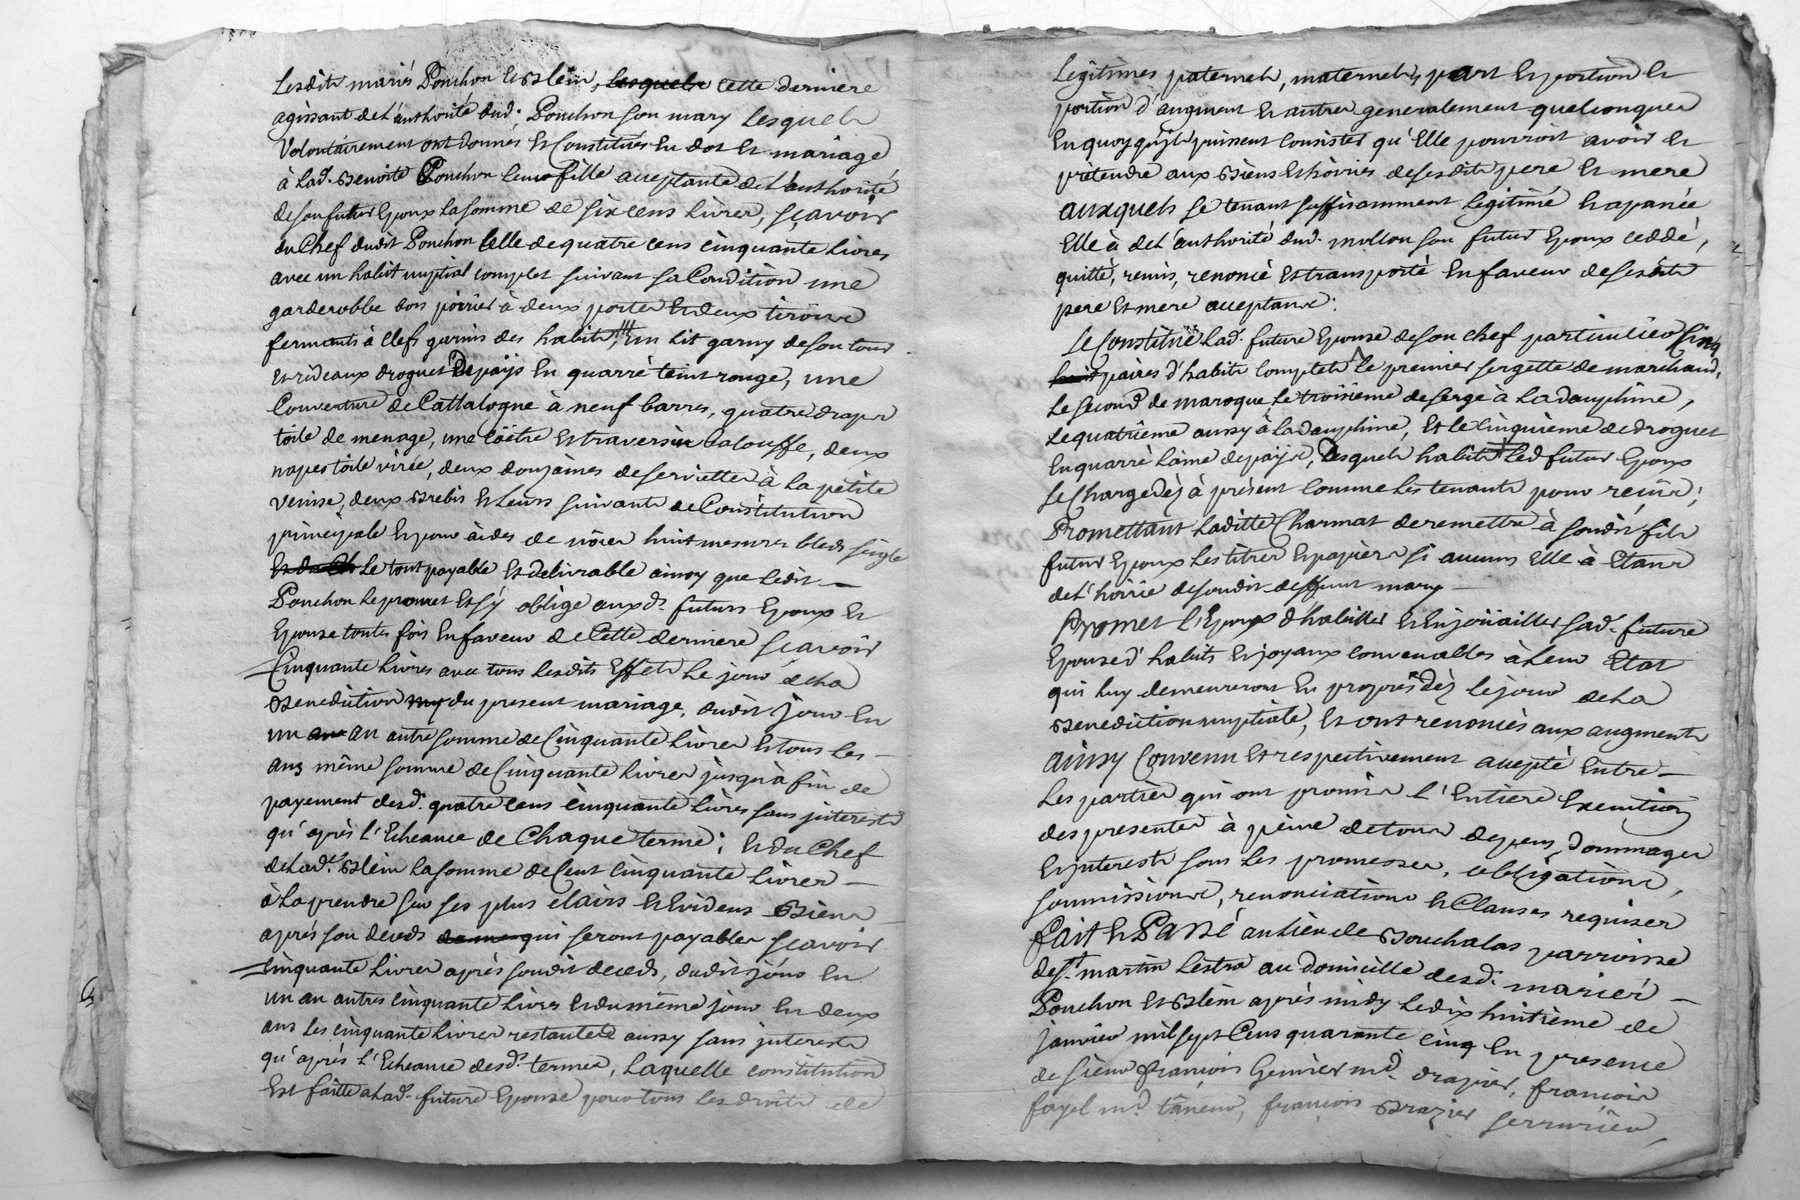 Lesdits mariés Ponchon et Blein, lesquels cette derniere
agissant de l'authorité dud. Ponchon son mary Lesquels
Volontairement ont donnés et Constitués En dot et mariage
à Lad. Benoite Ponchon leur fille acceptante de l'authorité
de son futur Epoux La somme de six cens Livres, sçavoir
du Chef dudit Ponchon Celle de quatre cens cinquante Livres
avec un habit nuptial complet suivant sa Condition une
garderobbe bois poirier à deux portes et deux tiroirs
fermants à clefs garnis des habits, un Lit garny de son tour
et rideaux droguet de païs En quarré teint rouge, une
Couverture de Cattalogne à neuf barres, quatre draps
toile de menage, une Coëtre et traversin balouffe, deux
napes toile virée, deux douzaines de serviettes à La petite
Venise, deux Brebis et Leurs suivants de Constitution
principale Et pour aides de nôces huit mesures bleds seigle
Et du Ch Le tout payable Et delivrable ainsy que Ledit
Ponchon Le promet Et s'y oblige auxd. futurs Epoux Et
Epouse toutes fois En faveur de Cette derniere sçavoir
Cinquante Livres avec tous Lesdits Effets Le jour de La
Benediction du present mariage, dudit jour En
un an autre somme de Cinquante Livres Et tous Les
ans même somme de Cinquante Livres jusqu'à fin de
payement desd. quatre cens cinquante Livres sans interests
qu'après l'Echeance de Chaque terme; Et du Chef
de Lad. Blein La somme de Cent Cinquante Livres
à La prendre sur ses plus clairs et Evidens Biens
après son deceds qui seront payables sçavoir
Cinquante Livres après sondit deceds, dudit jour En
un an autres cinquante Livres Et du même jour En deux
ans Les cinquante Livres restantes aussy sans interests
qu'après l'Echeance desd. termes, Laquelle constitution
Est faitte a Lad. future Epouse pour tous Les droits de
Legitimes paternels, maternels, part Et portion Et
portion d'augment Et autres generalement quelconques
En quoy qu'ils puissent Consister qu'Elle pourront avoir Et
prétendre aux Biens Et hoiries de sesdits pere Et mere
auxquels se tenant suffisamment Legitimé Et apanée
Elle à de l'authorité dud. mollon son futur Epoux ceddé,
quitté, remis, renoncé Et transporté En faveur de sesdits
pere Et mere acceptans:
Se Constitüe Lad. future Epouse de son chef particulier Cinq
paires d'habits Complets Le premier sergette de marchand,
Le second de maroque, Le troisième de serge à La dauphine,
Le quatrième aussy à La dauphine, Et le Cinquième de droguet
En quarré Laine de païs, Desquels habits Led futur Epoux
se Charge dèz à présent Comme Les tenants pour reçûs;
Promettant Laditte Charmat de remettre à sondit fils
futur Epoux Les titres Et papiers si aucuns Elle à Etans
de L'hoirie de sondit deffunt mary
Promet l'Epoux d'habiller Et Enjoüailler sad. future
Epouse d'habits Et joyaux convenables à Leur Etat
qui Luy demeureront En propres dèz Le jour de La
Benediction nuptiale, Et ont renoncés aux augments
ainsy Convenu Et respectivement accepté Entre
Les parties qui ont promis L'Entiere Execution
des presentes à peine de tous depens, dommages
Et interests sous Les promesses, obligations,
soumissions, renonciations Et Clauses requises
fait Et Passé au Lieu de Bouchalas parroisse
de St. martin Lestra au Domicille desd. mariés
Ponchon Et Blein après midy Le dix huitième de
janvier mil sept Cens quarante cinq En presence
de sieur françois Genier md. drapier, françois
fayel md. tâneur, françois Brazier serrurier,